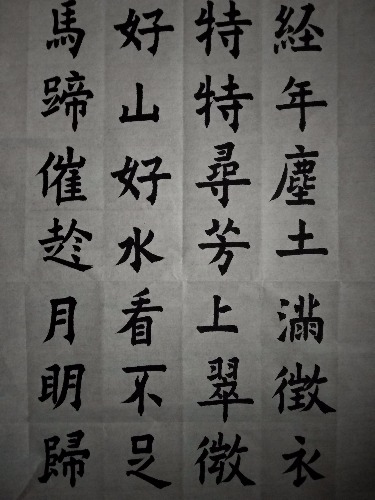 経年塵土滿徵衣
特特尋芳上翠微
好山好水看不足
馬蹄催趁月明歸